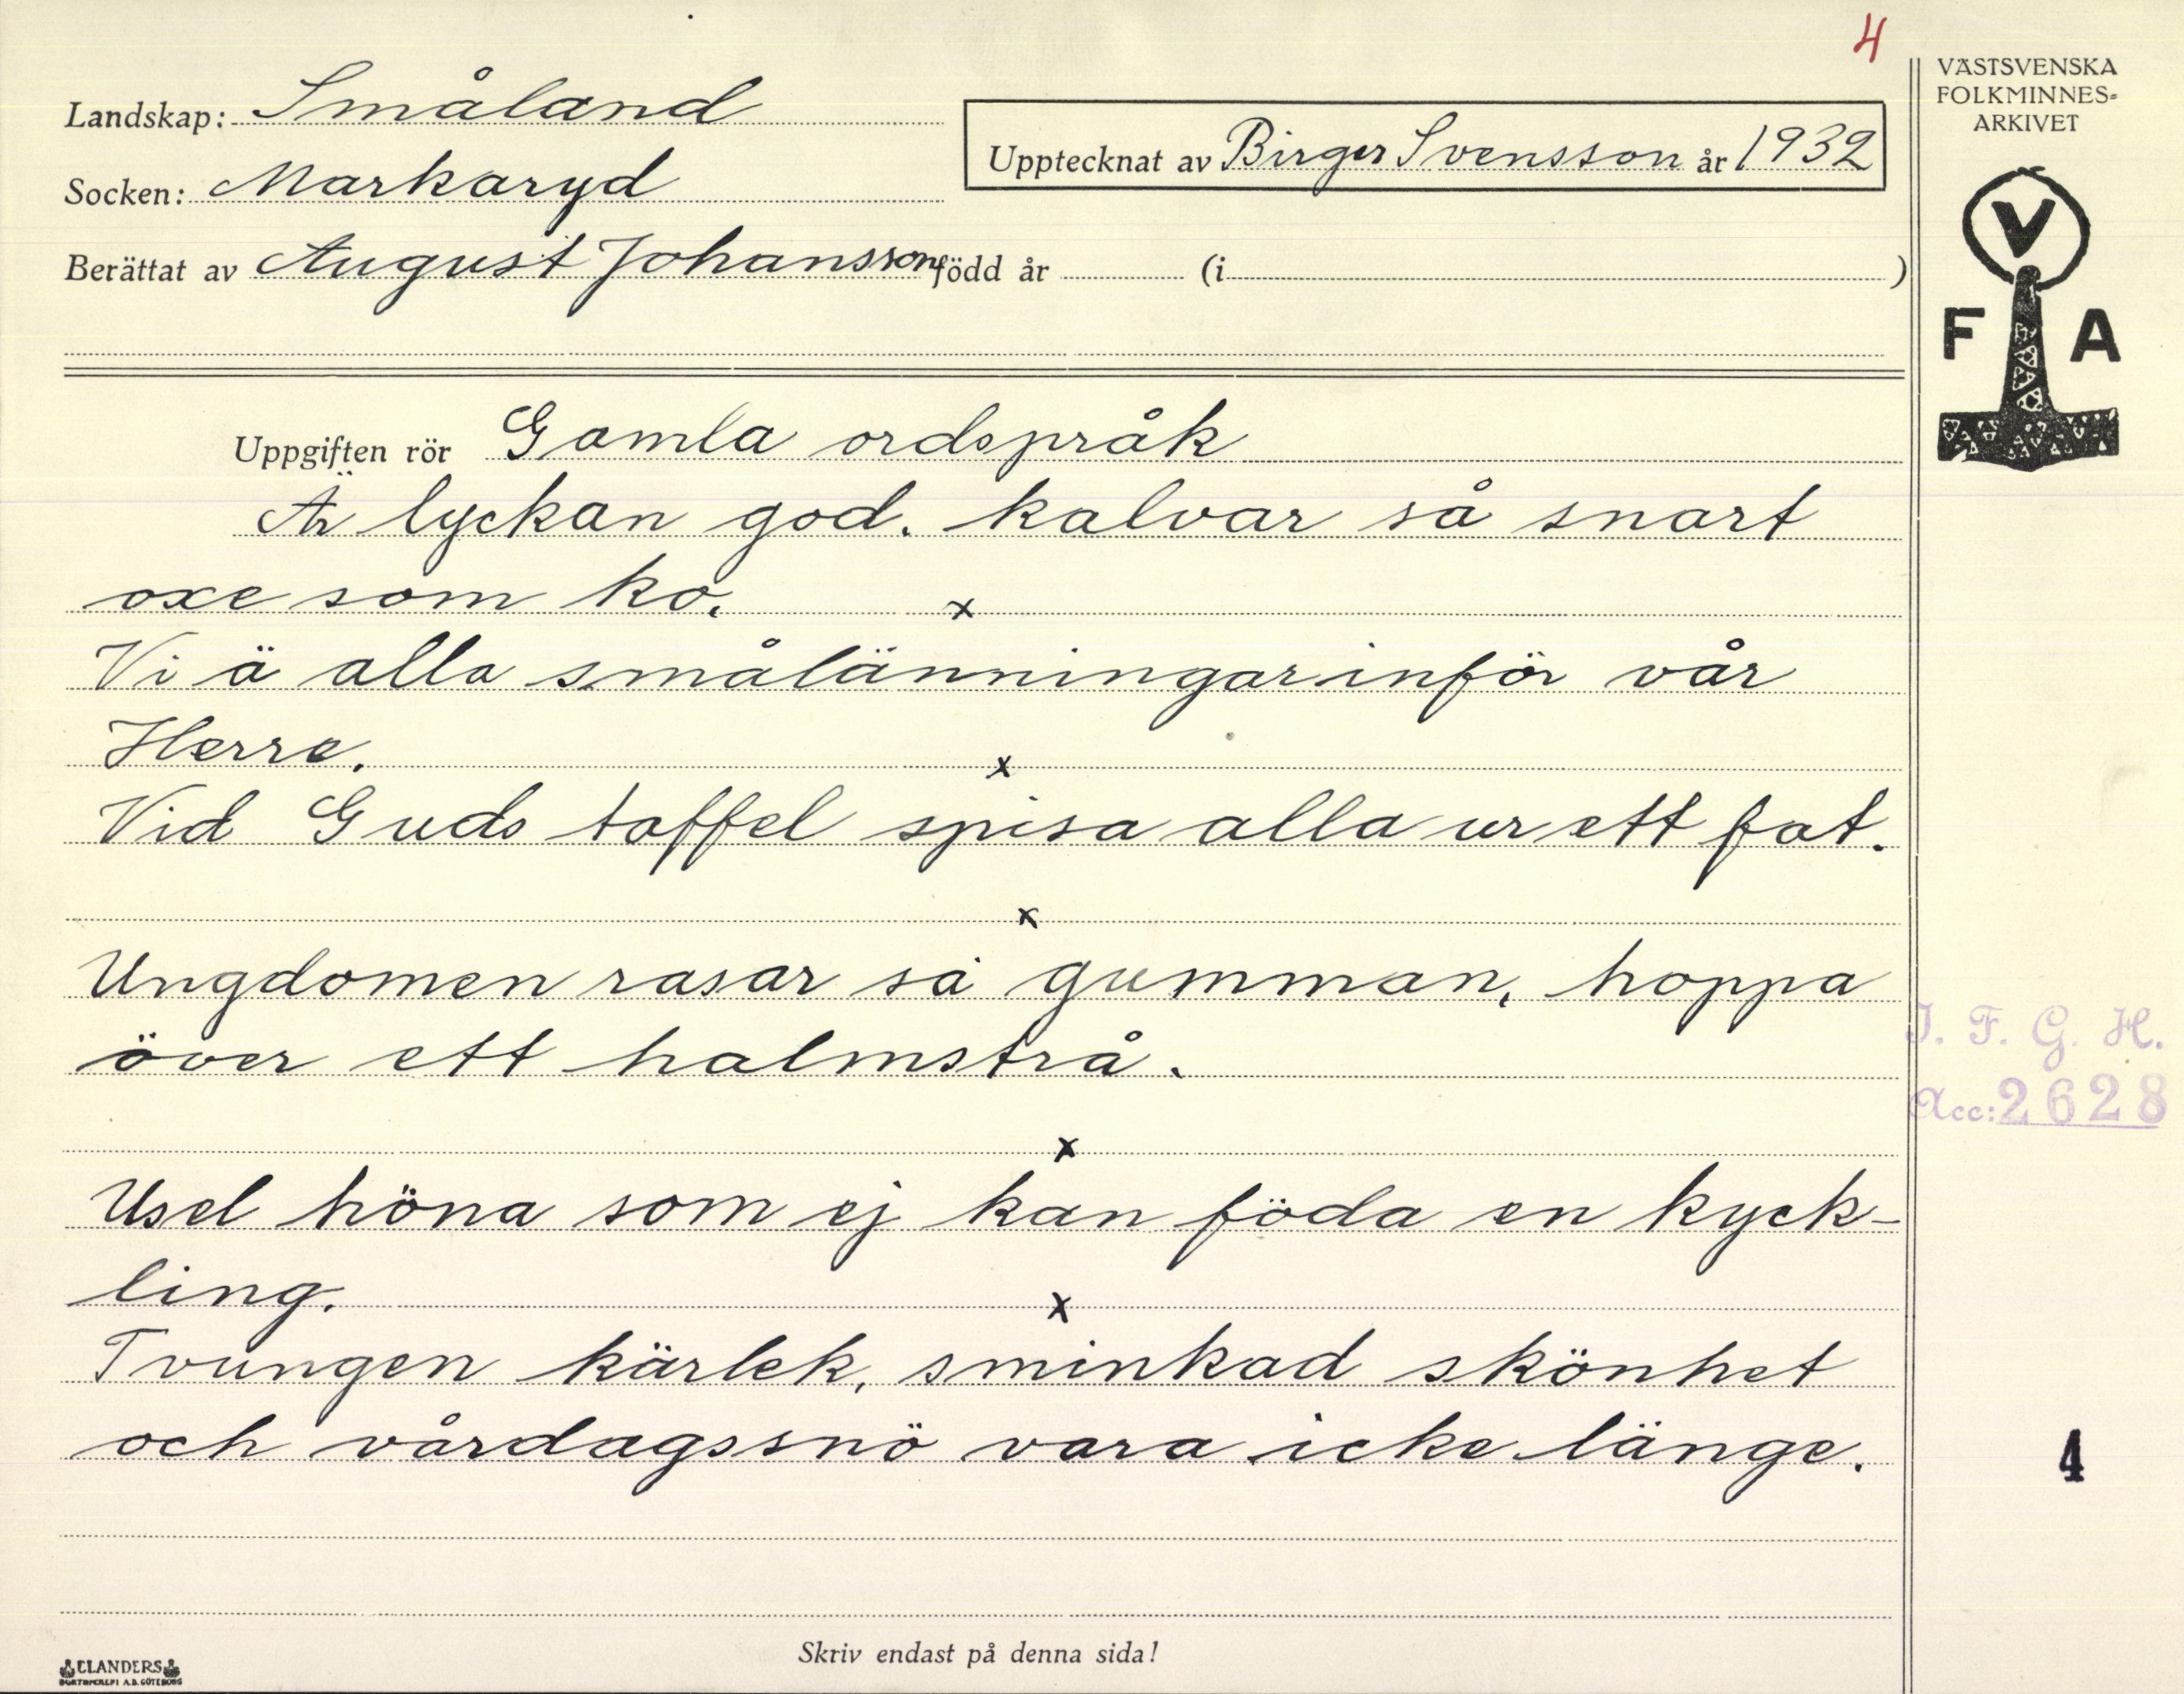 4
VÄSTSVENSKA
FOLKMINNES=
ARKIVET
Landskap: Småland
Upptecknat av Birger Svensson år 1932
Socken: Markaryd
Berättat av August Johansson född år (i )
V
F A
Uppgiften rör Gamla ordspråk
Är lyckan god. kalvar så snart
oxe som ko.
x
Vi ä alla smålänningar inför vår
Herre.
x
Vid Guds taffel spisa alla ur ett fat.
x
Ungdomen rasar sa gumman, hoppa
över ett halmstrå.
I. F. G. H.
Acc: 2628
x
Usel höna som ej kan föda en kyck-
ling.
x
Tvungen kärlek, sminkad skönhet
och vårdagssnö vara icke länge.
4
Skriv endast på denna sida!
ELANDERS
BOKTRYCKERI A.B. GÖTEBORG